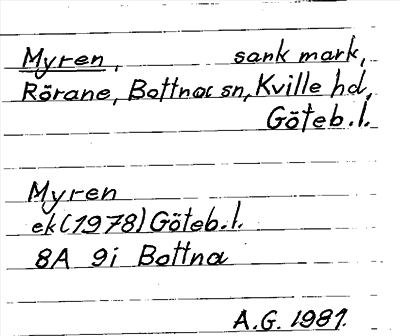 Myren, sank mark,
Rörane, Bottna sn, Kville hd,
Göteb. l.
Myren
ek (1978) Göteb. l.
8A 9i Bottna
A.G. 1981.